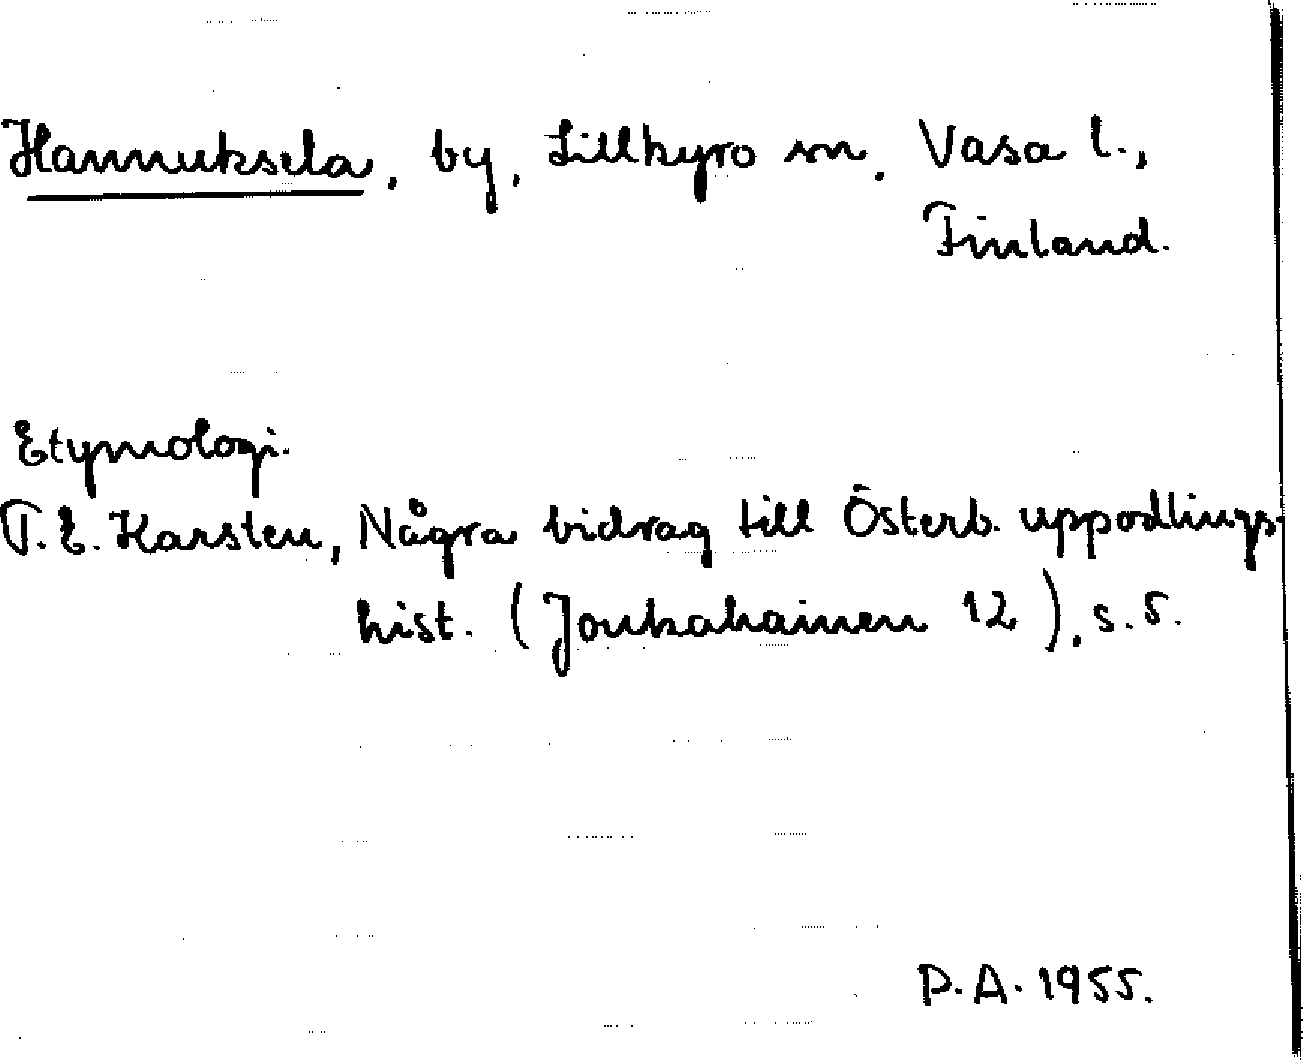 Hannuksela, by, Lillkyro sn, Vasa l.,
Finland.
Etymologi.
T. E. Karsten, Några bidrag till Österb. uppodlings-
hist. (Joukahainen 12), s. 5.
P. A. 1955.